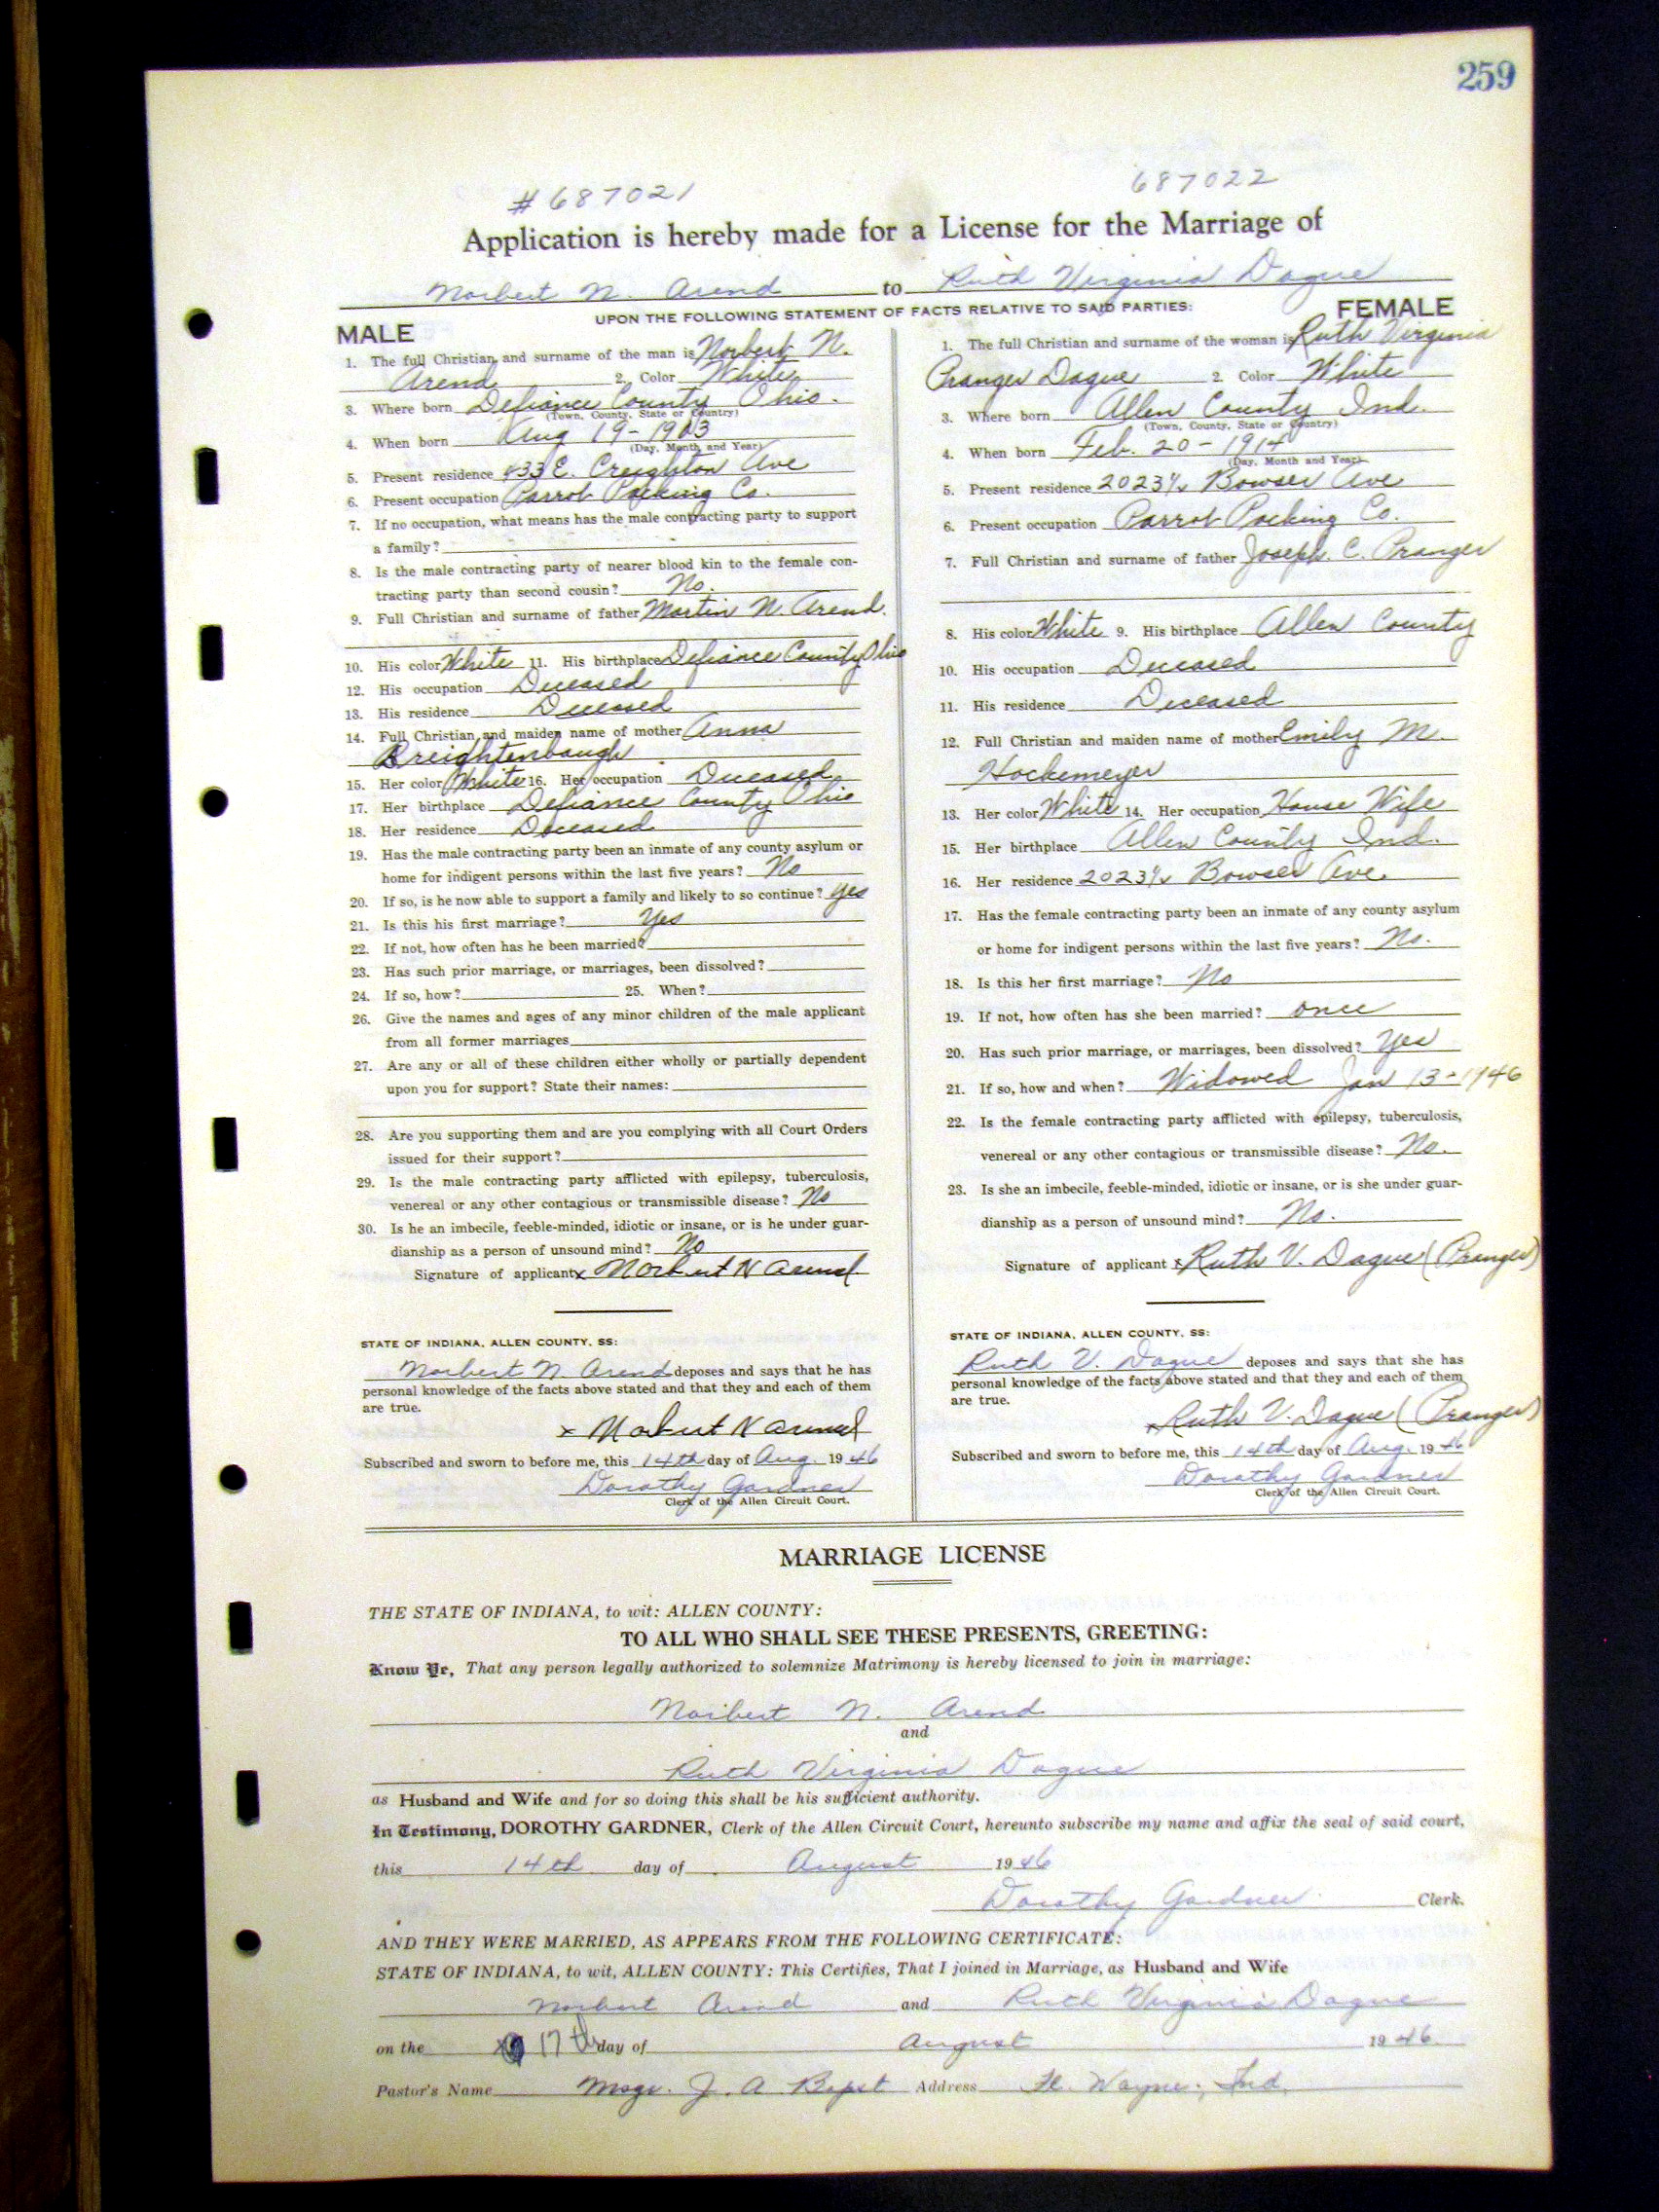 259
#687021 687022
Application is hereby made for a License for the Marriage of
Norbert N. Arend to Ruth Virginia Dague
UPON THE FOLLOWING STATEMENT OF FACTS RELATIVE TO SAID PARTIES:
MALE
1. The full Christian and surname of the man is Norbert N.
Arend 2. Color White
3. Where born Defiance County Ohio.
(Town, County, State or Country)
4. When born Aug 19-1903
(Day, Month and Year)
5. Present residence 433 E. Creighton Ave
6. Present occupation Parrot Packing Co.
7. If no occupation, what means has the male contracting party to support
a family?
8. Is the male contracting party of nearer blood kin to the female con-
tracting party than second cousin? No.
9. Full Christian and surname of father Martin N. Arend.
10. His color White 11. His birthplace Defiance County Ohio
12. His occupation Deceased
13. His residence Deceased
14. Full Christian and maiden name of mother Anna
Breightenbaugh
15. Her color White 16. Her occupation Deceased
17. Her birthplace Defiance County Ohio
18. Her residence Deceased
19. Has the male contracting party been an inmate of any county asylum or
home for indigent persons within the last five years? No
20. If so, is he now able to support a family and likely to so continue? Yes
21. Is this his first marriage? Yes
22. If not, how often has he been married?
23. Has such prior marriage, or marriages, been dissolved?
24. If so, how? 25. When?
26. Give the names and ages of any minor children of the male applicant
from all former marriages
27. Are any or all of these children either wholly or partially dependent
upon you for support? State their names:
28. Are you supporting them and are you complying with all Court Orders
issued for their support?
29. Is the male contracting party afflicted with epilepsy, tuberculosis,
venereal or any other contagious or transmissible disease? No
30. Is he an imbecile, feeble-minded, idiotic or insane, or is he under guar-
dianship as a person of unsound mind? No
Signature of applicant x Norbert N Arend
STATE OF INDIANA, ALLEN COUNTY, SS:
Norbert N. Arend deposes and says that he has
personal knowledge of the facts above stated and that they and each of them
are true.
x Norbert N Arend
Subscribed and sworn to before me, this 14th day of Aug. 1946
Dorothy Gardner
Clerk of the Allen Circuit Court.
FEMALE
1. The full Christian and surname of the woman is Ruth Virginia
Pranger Dague 2. Color White
3. Where born Allen County Ind.
(Town, County, State or Country)
4. When born Feb. 20-1914
(Day, Month and Year)
5. Present residence 2023½ Bowser Ave
6. Present occupation Parrot Packing Co.
7. Full Christian and surname of father Joseph. C. Pranger
8. His color White 9. His birthplace Allen County
10. His occupation Deceased
11. His residence Deceased
12. Full Christian and maiden name of mother Emily M.
Hockemeyer
13. Her color White 14. Her occupation House Wife
15. Her birthplace Allen County Ind.
16. Her residence 2023½ Bowser Ave.
17. Has the female contracting party been an inmate of any county asylum
or home for indigent persons within the last five years? No.
18. Is this her first marriage? No
19. If not, how often has she been married? once
20. Has such prior marriage, or marriages, been dissolved? Yes
21. If so, how and when? Widowed Jan 13-1946
22. Is the female contracting party afflicted with epilepsy, tuberculosis,
venereal or any other contagious or transmissible disease? No.
23. Is she an imbecile, feeble-minded, idiotic or insane, or is she under guar-
dianship as a person of unsound mind? No.
Signature of applicant x Ruth V. Dague (Pranger)
STATE OF INDIANA, ALLEN COUNTY, SS:
Ruth V. Dague deposes and says that she has
personal knowledge of the facts above stated and that they and each of them
are true.
x Ruth V. Dague (Pranger)
Subscribed and sworn to before me, this 14th day of Aug. 1946
Dorothy Gardner
Clerk of the Allen Circuit Court.
MARRIAGE LICENSE
THE STATE OF INDIANA, to wit: ALLEN COUNTY:
TO ALL WHO SHALL SEE THESE PRESENTS, GREETING:
Know Ye, That any person legally authorized to solemnize Matrimony is hereby licensed to join in marriage:
Norbert N. Arend
and
Ruth Virginia Dague
as Husband and Wife and for so doing this shall be his sufficient authority.
In Testimony, DOROTHY GARDNER, Clerk of the Allen Circuit Court, hereunto subscribe my name and affix the seal of said court,
this 14th day of August 1946
Dorothy Gardner Clerk.
AND THEY WERE MARRIED, AS APPEARS FROM THE FOLLOWING CERTIFICATE:
STATE OF INDIANA, to wit, ALLEN COUNTY: This Certifies, That I joined in Marriage, as Husband and Wife
Norbert Arend and Ruth Virginia Dague
on the 17th day of August 1946
Pastor's Name Msgr. J. A. Bapst Address Ft. Wayne, Ind.